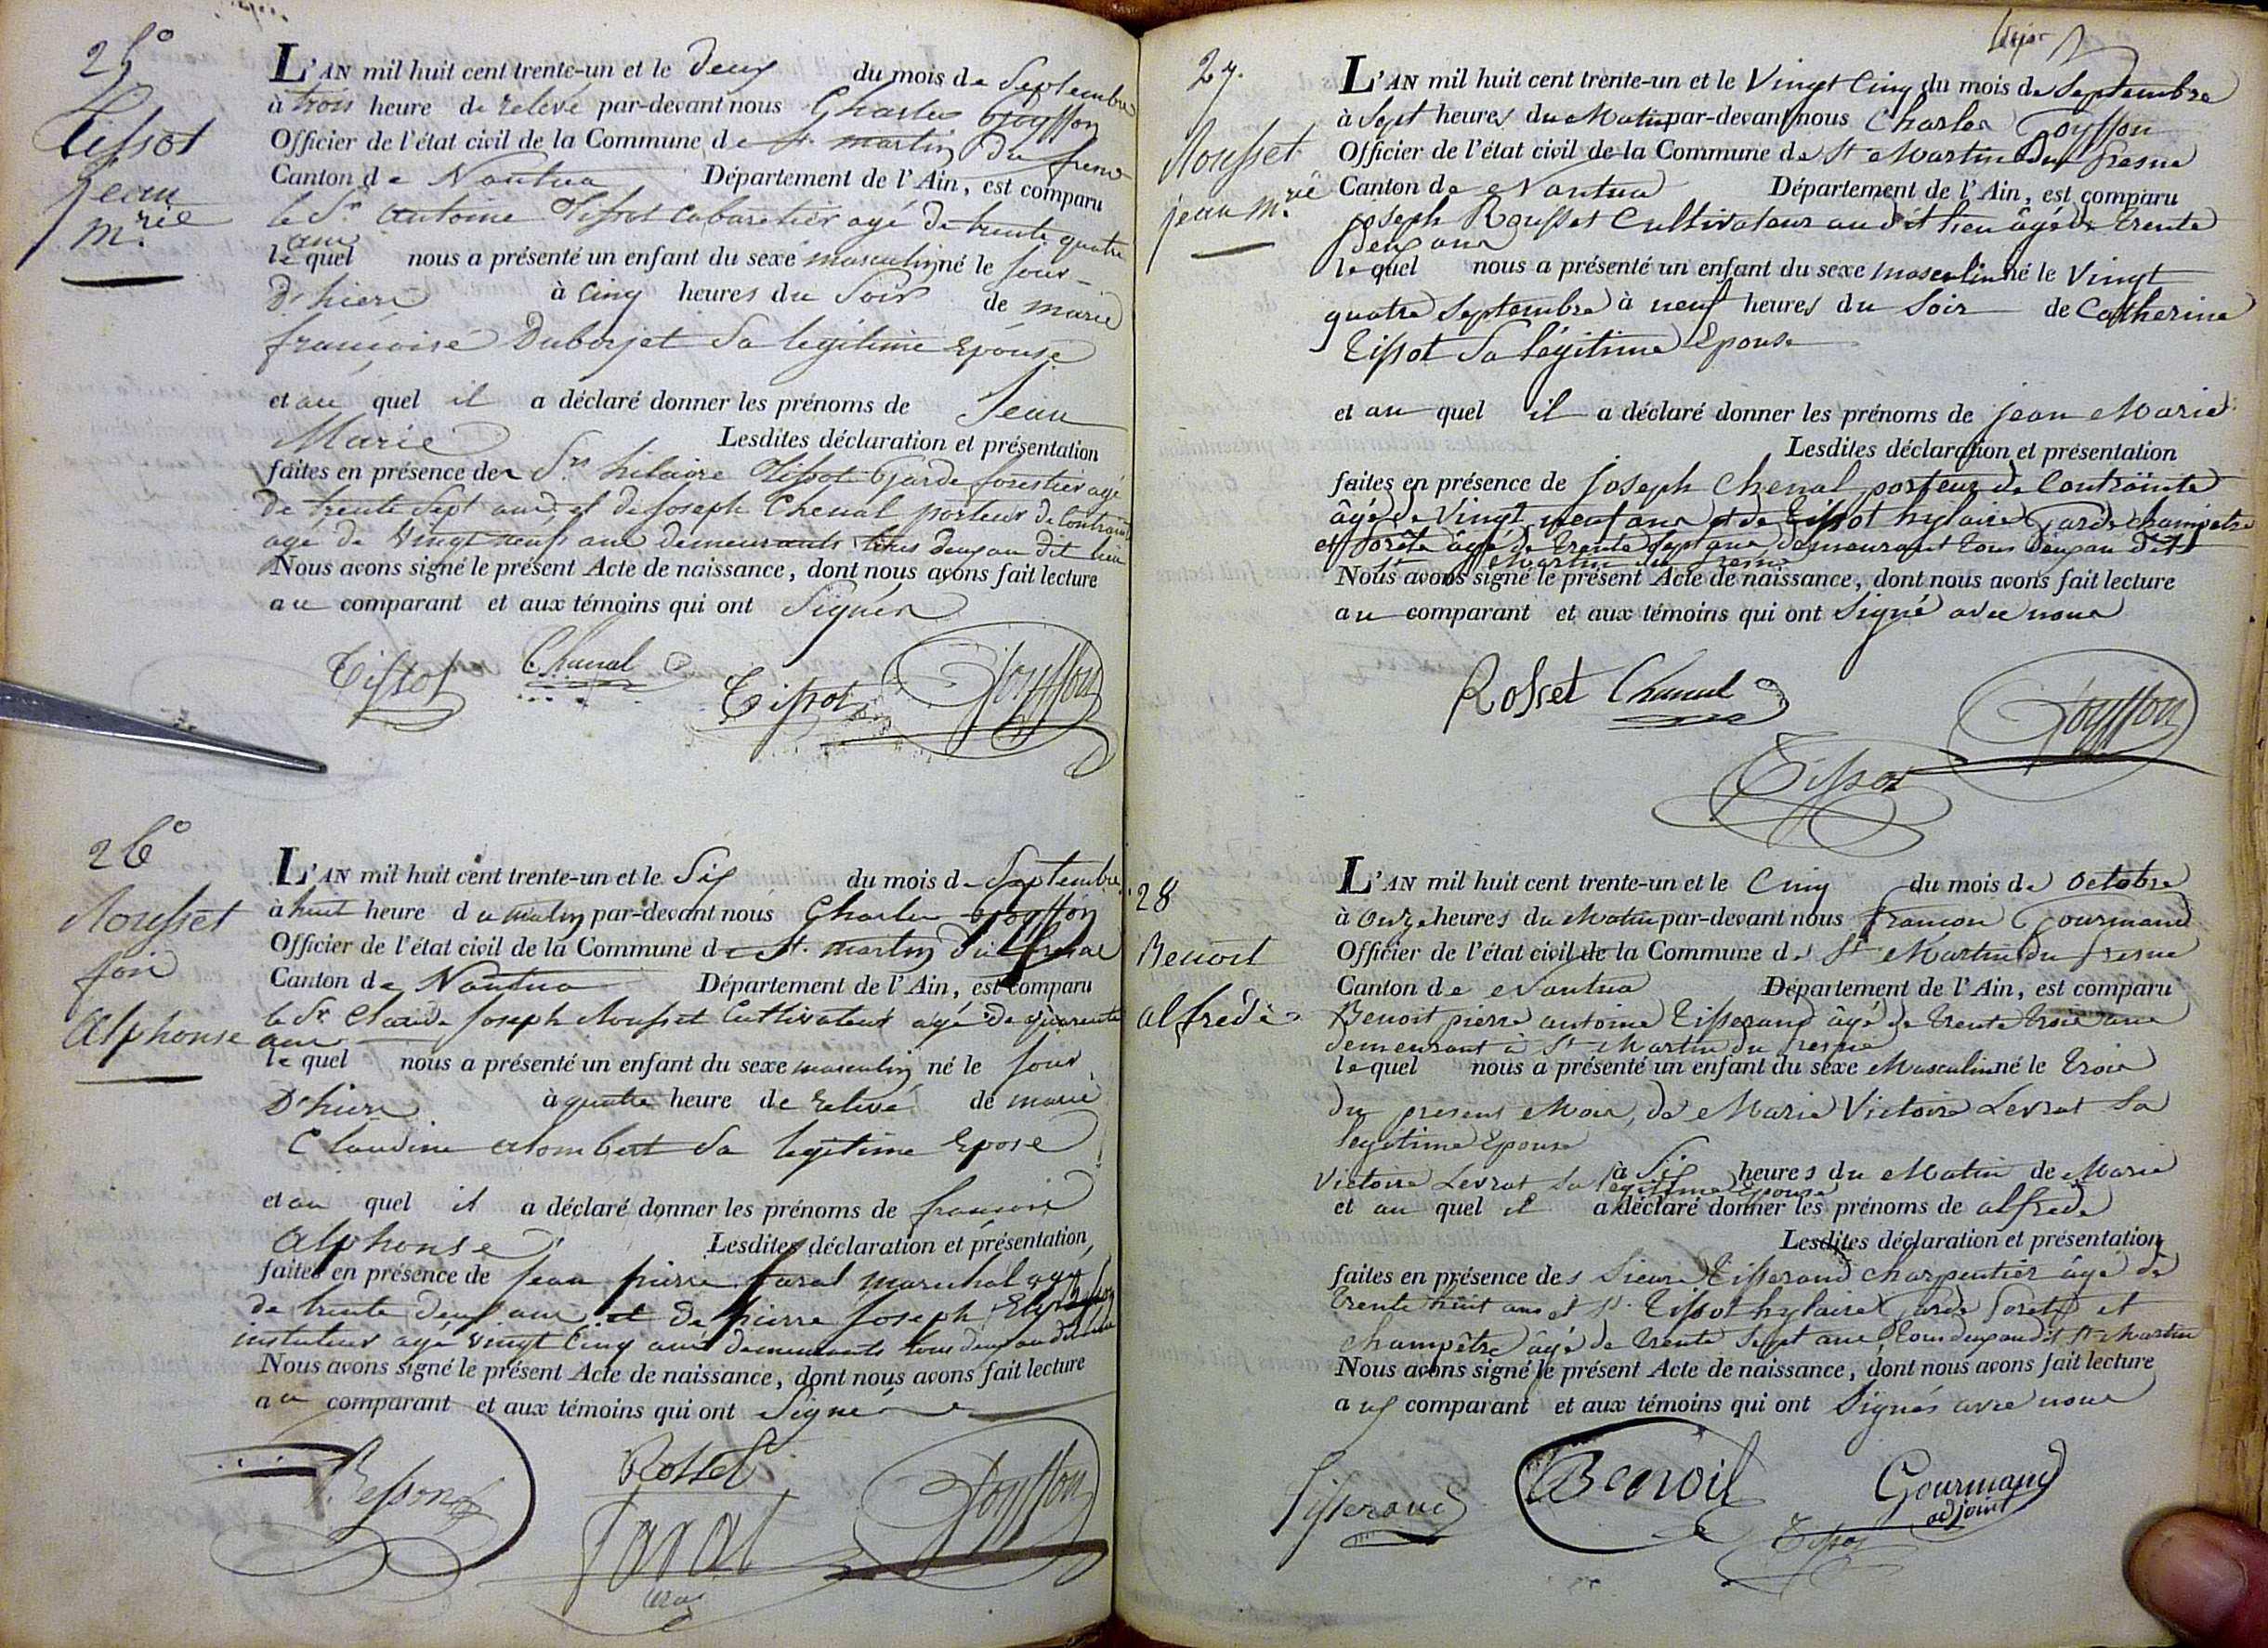 25°
Tissot
jean
m.rie
L'AN mil huit cent trente-un et le deux du mois de Septembre
à trois heure de relevé par-devant nous Charles Goyffon
Officier de l'état civil de la Commune de St. martin du frene
Canton de Nantua Département de l'Ain, est comparu
le Sr antoine Tissot cabaretier agé de trente quatre
ans
le quel nous a présenté un enfant du sexe masculin né le jour
D'hiere à cinq heures du Soir de marie
francoise Duborjet Sa legitime Epouse
et au quel il a déclaré donner les prénoms de Jean
Marie Lesdites déclaration et présentation
faites en présence de Srs hilaire Tissot Garde forestier agé
de trente Sept ans, et de Joseph Chenal porteur de Contrainte
agé de Vingt neuf ans demeurants tous deux au dit lieu
Nous avons signé le présent Acte de naissance, dont nous avons fait lecture
au comparant et aux témoins qui ont Signér
Tissot Chanal Tissot Goyffon
26°
Rousset
foie
Alphonse
L'AN mil huit cent trente-un et le Six du mois de Septembre
à huit heure du matin par-devant nous Charles Goyffon
Officier de l'état civil de la Commune de St. martin du fresne
Canton de Nantua Département de l'Ain, est comparu
le Sr Claude Joseph Rousset Cultivateur agé de quarente
ans
le quel nous a présenté un enfant du sexe masculin né le jour
D'hiere à quatre heure de relevé de marie
Claudine alombert Sa legitime Epose
et au quel il a déclaré donner les prénoms de francois
Alphonse Lesdites déclaration et présentation,
faites en présence de Jean pierre Laral marechal agé
de trente deux ans et de pierre Joseph
instituteur agé vingt Cinq ans demeurants tous deux au dit lieu
Nous avons signé le présent Acte de naissance, dont nous avons fait lecture
au comparant et aux témoins qui ont Signé
Rosset
Goyffon
27.
Rousset
jean m.rie
L'AN mil huit cent trente-un et le Vingt Cinq du mois de Septembre
à Sept heures du Matin par-devant nous Charles Goyffon
Officier de l'état civil de la Commune de St Martin Du fresne
Canton de Nantua Département de l'Ain, est comparu
joseph Rousset Cultivateur au dit lieu âgé de trente
deux ans
le quel nous a présenté un enfant du sexe masculin né le Vingt
quatre Septembre à neuf heures du Soir de Catherine
Tissot Sa légitime Epouse
et au quel il a déclaré donner les prénoms de jean Marie
Lesdites déclaration et présentation
faites en présence de joseph Chenal porteur de Contrainte
âgé de Vingt neuf ans et de Tissot hylaire Garde champetre
et forête âgé de trente Sept ans demeurant tous deux au dit
St Martin du fresne
Nous avons signé le présent Acte de naissance, dont nous avons fait lecture
au comparant et aux témoins qui ont Signé avec nous
Rosset Chanal Goyffon
Tissot
28
Benoit
alfrede
L'AN mil huit cent trente-un et le Cinq du mois de Octobre
à onze heures du Matin par-devant nous francois Gourmand
Officier de l'état civil de la Commune de St Martin du fresne
Canton de Nantua Département de l'Ain, est comparu
Benoit pierre antoine Tisserand âgé de trente trois ans
demeurant à St Martin du fresne
le quel nous a présenté un enfant du sexe Masculin né le trois
du present Mois, de Marie Victoire Levrat Sa
legitime Epouse
à Six heures du Matin de Marie
Victoire Levrat Sa légitime Epouse
et au quel il a déclaré donner les prénoms de alfrede
Lesdites déclaration et présentation
faites en présence des Sieurs Tisserand charpentier âgé de
trente huit ans et Sr. Tissot hylaire Garde foret et
champêtre âgé de trente Sept ans tous deux au dit St Martin
Nous avons signé le présent Acte de naissance, dont nous avons fait lecture
aux comparant et aux témoins qui ont Signés avec nous
Tisserand Benoit Gourmand
adjoint
Tissot